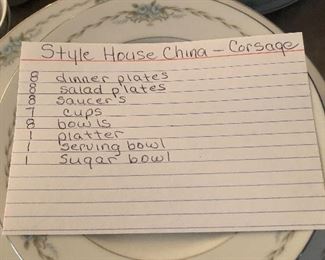 Style House China - Corsage
8 dinner plates
8 salad plates
8 saucer's
7 cups
8 bowls
1 platter
1 serving bowl
1 sugar bowl